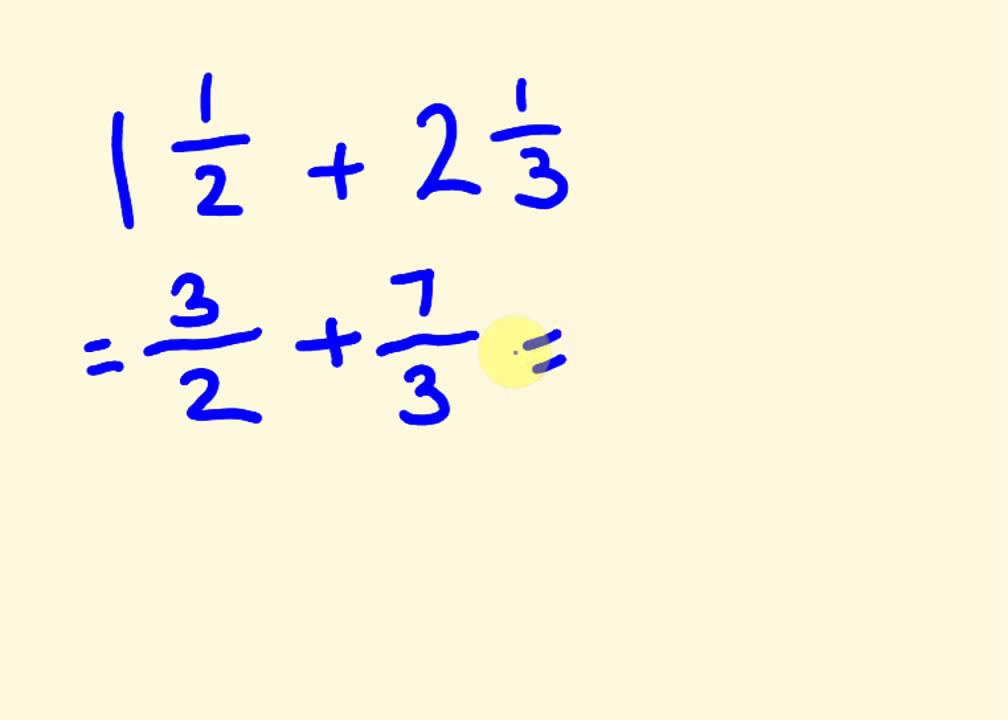 1 1/2 + 2 1/3
= 3/2 + 7/3 =